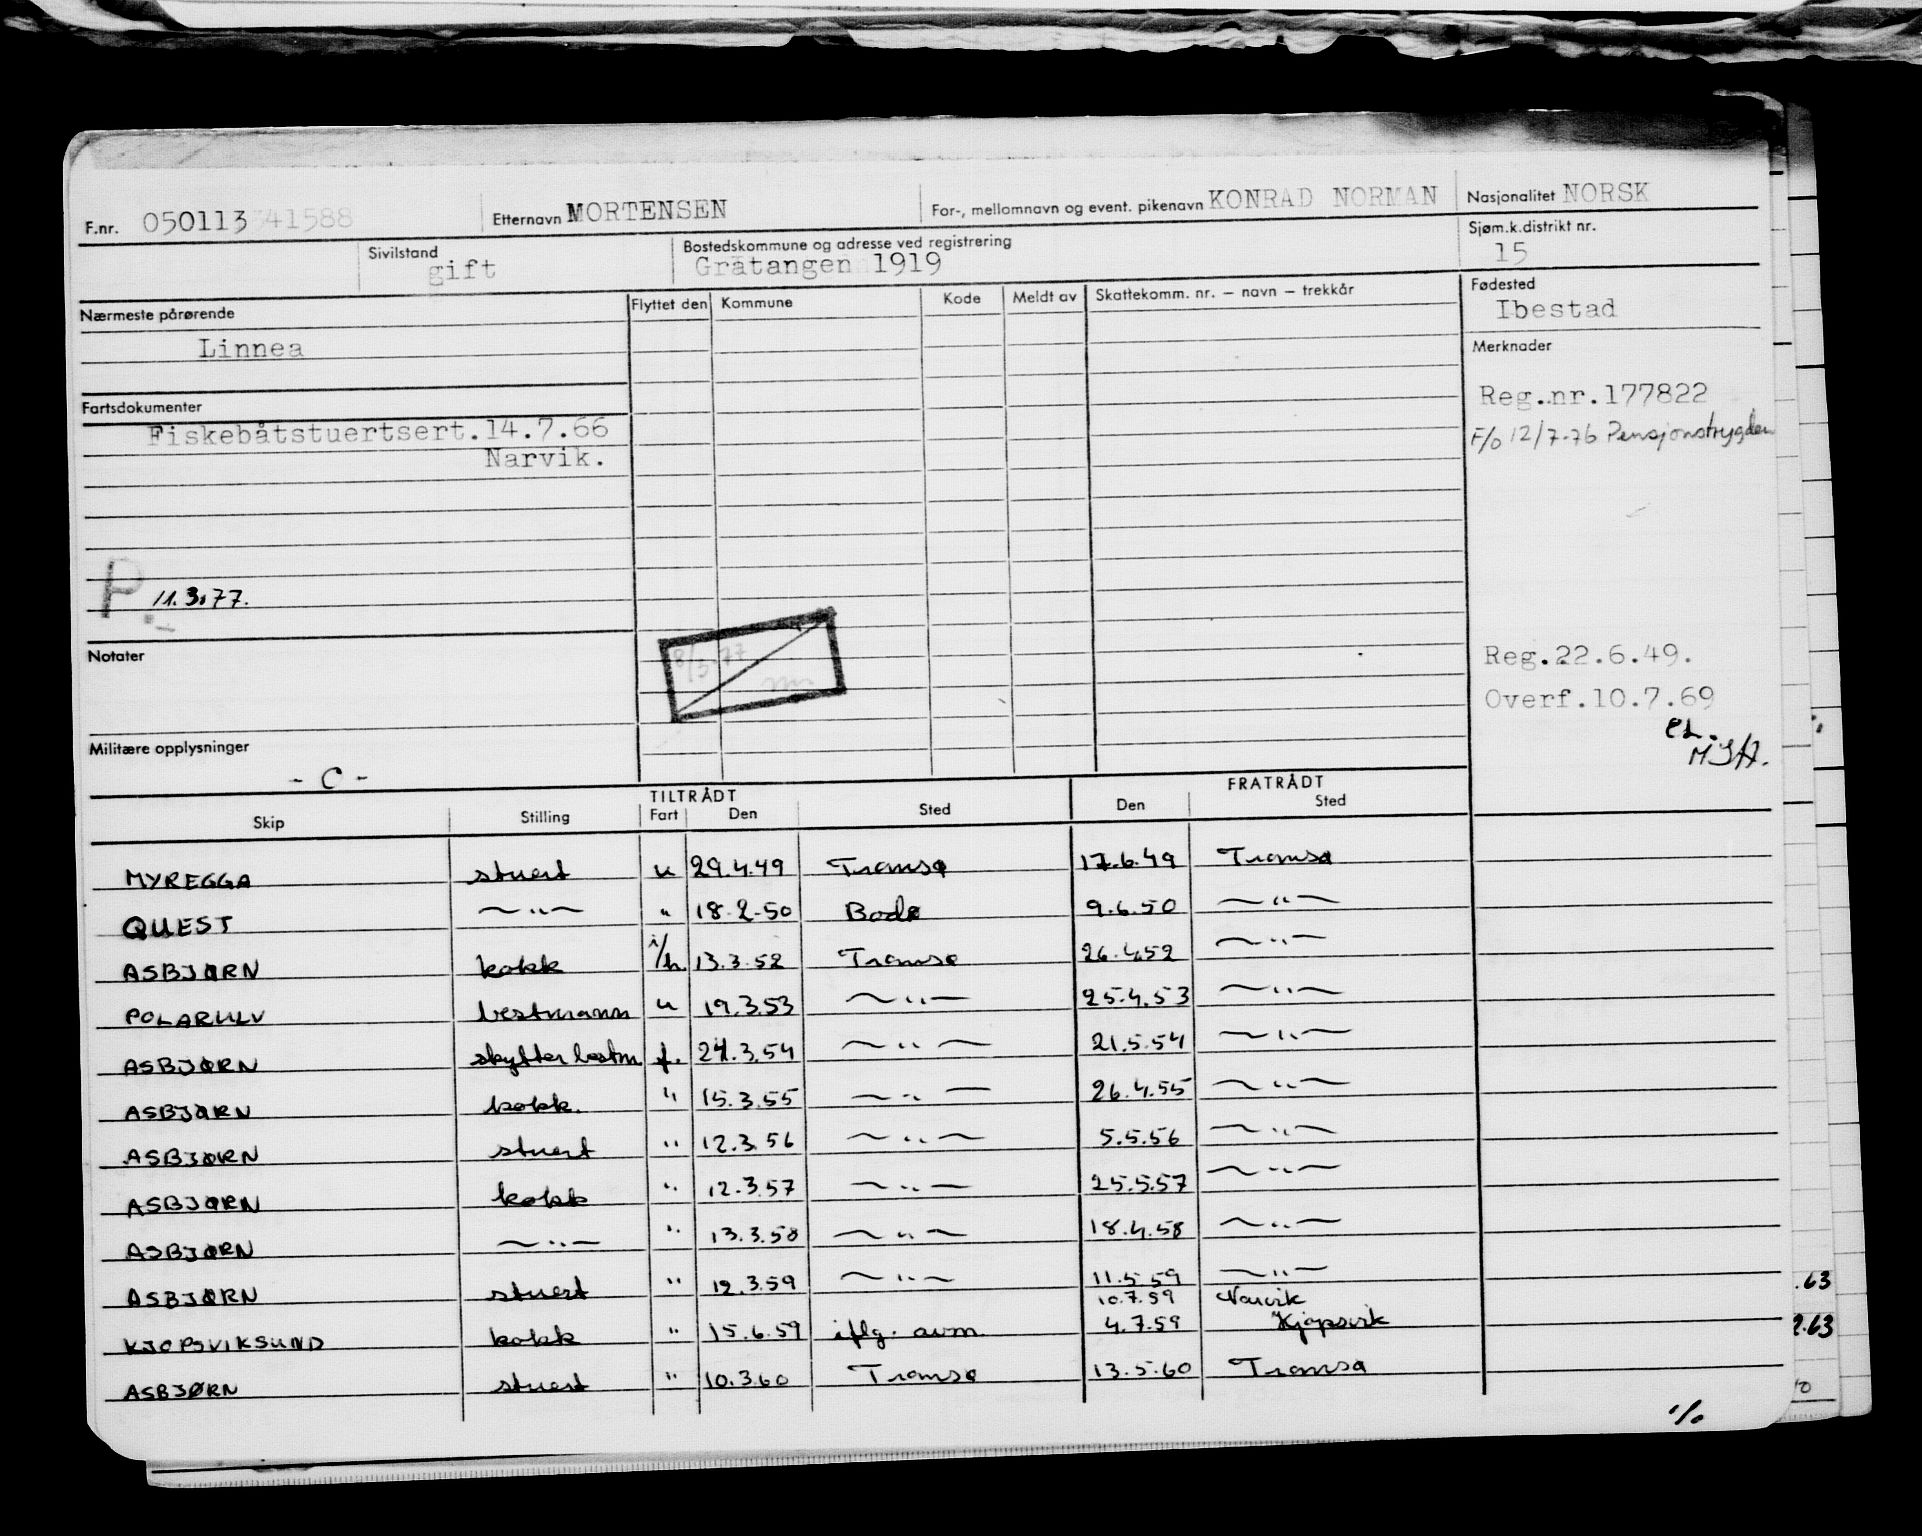 F.nr. 050113 41588 Etternavn MORTENSEN For-, mellomnavn og event. pikenavn KONRAD NORMAN Nasjonalitet NORSK
Sivilstand gift Bostedskommune og adresse ved registrering Gratangen 1919 Sjøm.k.distrikt nr. 15
Nærmeste pårørende Flyttet den Kommune Kode Meldt av Skattekomm. nr. – navn – trekkår Fødested Ibestad
Linnea
Merknader
Fartsdokumenter
Reg.nr.177822
Fiskebåtstuertsert.14.7.66
Narvik.
F/o 12/7-76 Pensjonstrygden
P 11.3.77.
8/3-77
Notater
Reg.22.6.49.
Overf.10.7.69
Militære opplysninger
- C -
TILTRÅDT FRATRÅDT
Skip Stilling Fart Den Sted Den Sted
MYREGGA stuert u 29.4.49 Tromsø 17.6.49 Tromsø
QUEST —"— " 18.2.50 Bodø 9.6.50 —"—
ASBJØRN kokk i/h. 13.3.52 Tromsø 26.4.52 —"—
POLARULV bestmann u 19.3.53 —"— 25.4.53 —"—
ASBJØRN skytter bestm. f. 24.3.54 —"— 21.5.54 —"—
ASBJØRN kokk. " 15.3.55 —"— 26.4.55 —"—
ASBJØRN stuert " 12.3.56 —"— 5.5.56 —"—
ASBJØRN kokk " 12.3.57 —"— 25.5.57 —"—
ASBJØRN —"— " 13.3.58 —"— 18.4.58 —"—
ASBJØRN stuert " 12.3.59 —"— 11.5.59 —"—
10.7.59 Narvik
KJØPSVIKSUND kokk " 15.6.59 iflg. avm. 4.7.59 Kjøpsvik
ASBJØRN stuert " 10.3.60 Tromsø 13.5.60 Tromsø
.63
2.63